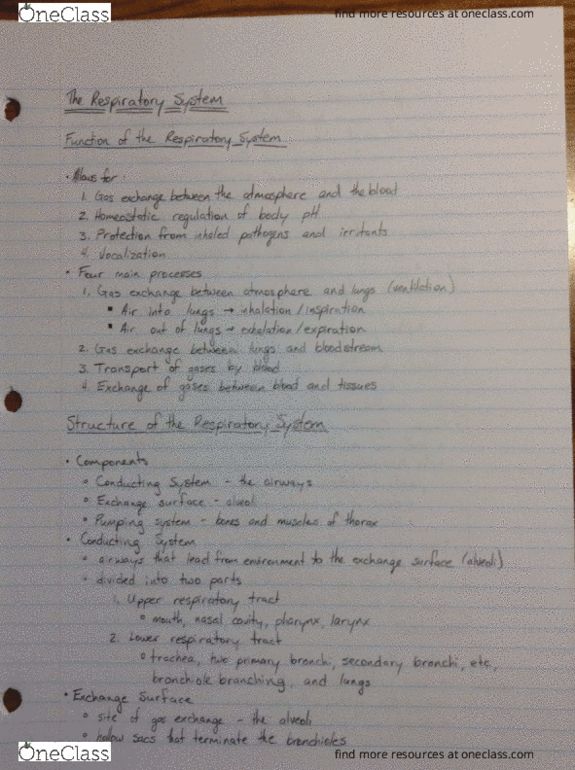 OneClass
find more resources at oneclass.com
The Respiratory System
Function of the Respiratory System
• Allows for:
1. Gas exchange between the atmosphere and the blood
2. Homeostatic regulation of body pH
3. Protection from inhaled pathogens and irritants
4. Vocalization
• Four main processes
1. Gas exchange between atmosphere and lungs (ventilation)
▪ Air into lungs → inhalation/inspiration
▪ Air out of lungs → exhalation/expiration
2. Gas exchange between lungs and bloodstream
3. Transport of gases by blood
4. Exchange of gases between blood and tissues
Structure of the Respiratory System
• Components
◦ Conducting System - the airways
◦ Exchange surface - alveoli
◦ Pumping system - bones and muscles of thorax
• Conducting System
◦ airways that lead from environment to the exchange surface (alveoli)
◦ divided into two parts
1. Upper respiratory tract
◦ mouth, nasal cavity, pharynx, larynx
2. Lower respiratory tract
◦ trachea, two primary bronchi, secondary bronchi, etc,
bronchiole branching, and lungs
• Exchange Surface
◦ site of gas exchange - the alveoli
◦ hollow sacs that terminate the bronchioles
OneClass
find more resources at oneclass.com